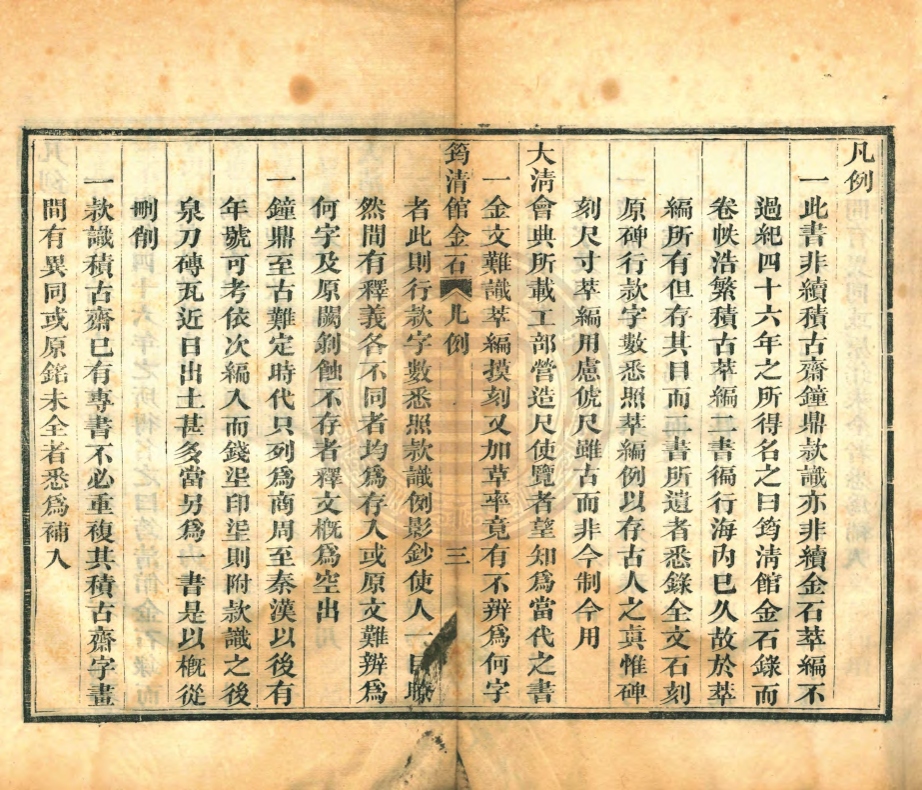 凡例
一此書非續積古齋鐘鼎款識亦非續金石萃編不
過紀四十六年之所得名之曰筠清館金石錄而
卷帙浩繁積古萃編二書徧行海內已久故於萃
編所有但存其目而二書所遺者悉錄全文石刻
原碑行款字數悉照萃編例以存古人之真惟碑
刻尺寸萃編用慮俿尺雖古而非今制今用
大淸會典所載工部營造尺使覽者望知爲當代之書
一金文難識萃編摸刻又加草率竟有不辨爲何字
筠清館金石 凡例 三
者此則行款字數悉照款識例影鈔使人一目瞭
然間有釋義各不同者均爲存入或原文難辨爲
何字及原闕剝蝕不存者釋文槪爲空出
一鐘鼎至古難定時代只列爲商周至秦漢以後有
年號可考依次編入而錢笵印笵則附款識之後
泉刀磚瓦近日出土甚多當另爲一書是以槪從
刪削
一款識積古齋已有專書不必重複其積古齋字畫
間有異同或原銘未全者悉爲補入